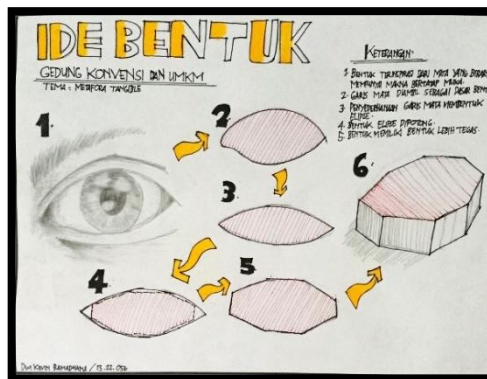 IDE BENTUK
GEDUNG KONVENSI DAN UMKM
TEMA : METAFORA TANGIBLE
KETERANGAN:
1. BENTUK TERINSPIRASI DARI MATA YANG
MEMPUNYAI MAKNA BERTATAP MUKA.
2. GARIS MATA DIAMBIL SEBAGAI DASAR
3. PENYEDERHANAAN GARIS MATA MEMBENTUK
ELIPSE.
4. BENTUK ELIPSE DIPOTONG.
5. BENTUK MEMILIKI BENTUK LEBIH TEGAS.
1.
2
3
4
5
6.